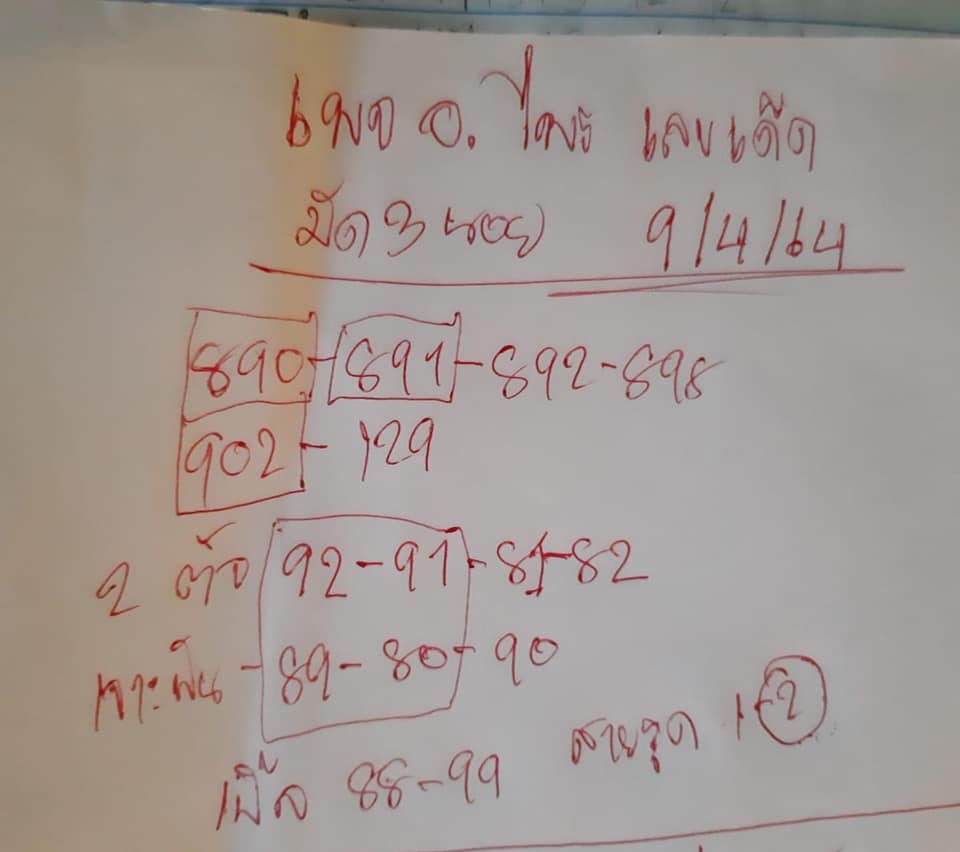 เพจ อ. ไพร เลขเด็ด
มัด 3 หอย 9/4/64
890-891-892-898
902-129
2 ตัว 92-91-81-82
เจาะฟัน-89-80-90
เบิ้ล 88-99 สายรูด 1-2